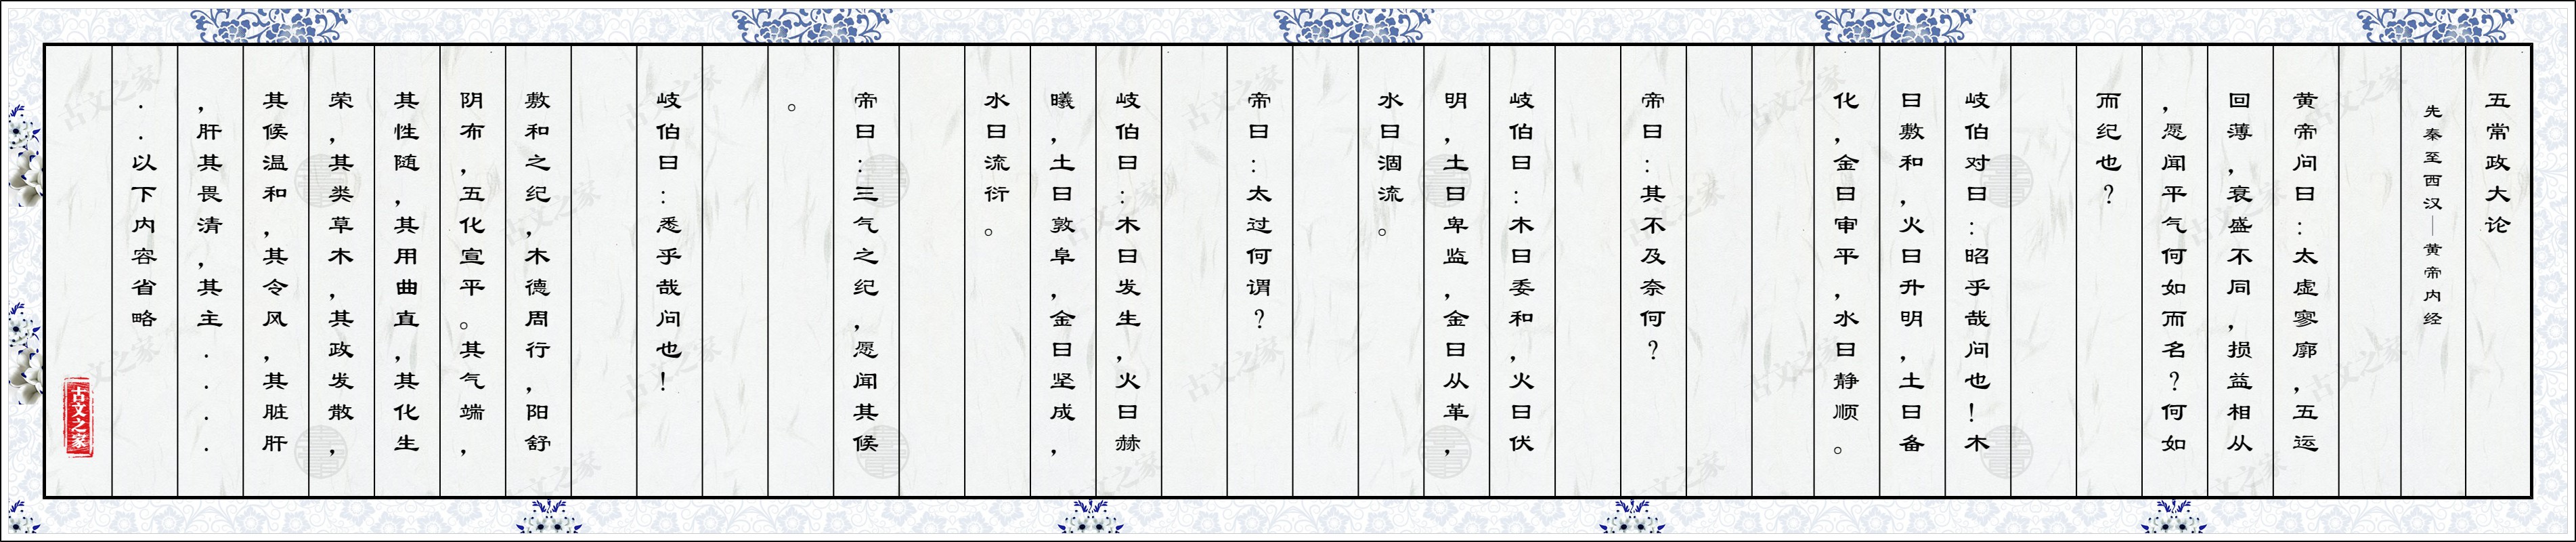 五常政大论
先秦至西汉—黄帝内经
黄帝问曰:太虚寥廓,五运
回薄,衰盛不同,损益相从
,愿闻平气何如而名?何如
而纪也?
岐伯对曰:昭乎哉问也!木
曰敷和,火曰升明,土曰备
化,金曰审平,水曰静顺。
帝曰:其不及奈何?
岐伯曰:木曰委和,火曰伏
明,土曰卑监,金曰从革,
水曰涸流。
帝曰:太过何谓?
岐伯曰:木曰发生,火曰赫
曦,土曰敦阜,金曰坚成,
水曰流衍。
帝曰:三气之纪,愿闻其候
。
岐伯曰:悉乎哉问也!
敷和之纪,木德周行,阳舒
阴布,五化宣平。其气端,
其性随,其用曲直,其化生
荣,其类草木,其政发散,
其候温和,其令风,其脏肝
,肝其畏清,其主....
..以下内容省略
古文之家